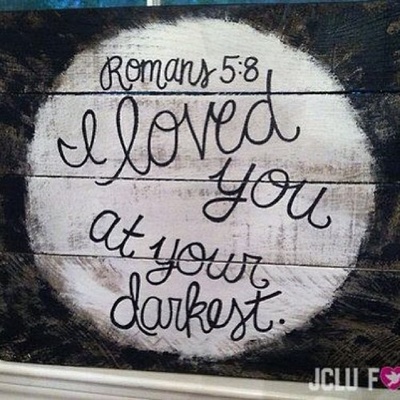 Romans 5:8
I loved
you
at your
darkest.
JCLU F